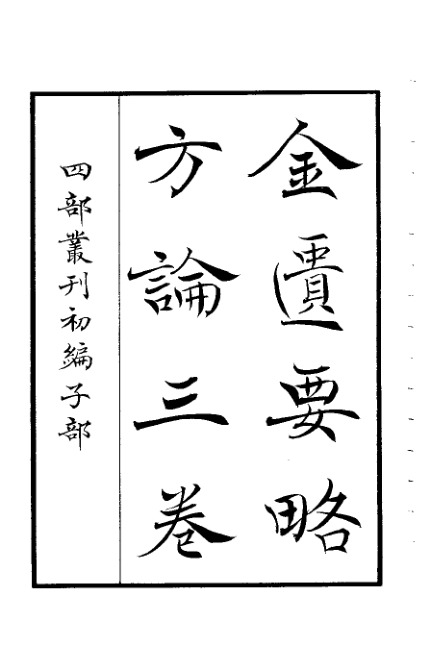 金匱要略
方論三卷
四部叢刊初編子部